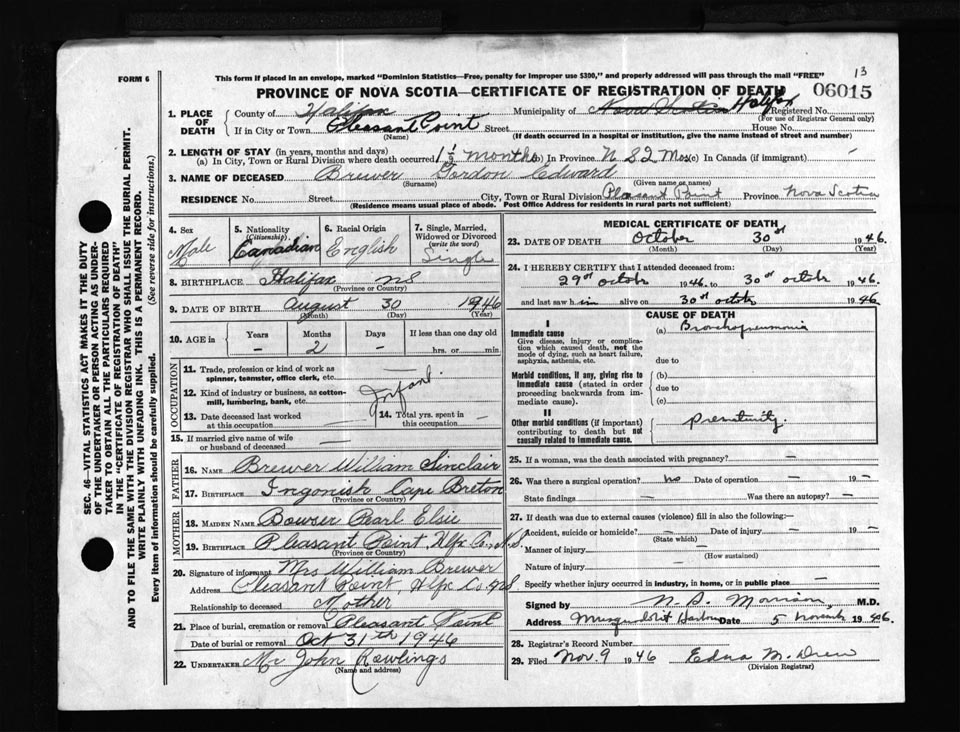 FORM 6
This form if placed in an envelope, marked "Dominion Statistics—Free, penalty for improper use $300," and properly addressed will pass through the mail "FREE"
13
PROVINCE OF NOVA SCOTIA—CERTIFICATE OF REGISTRATION OF DEATH 06015
1. PLACE OF DEATH County of Halifax Municipality of Nova Scotia Halifax Registered No.
(For use of Registrar General only)
If in City or Town Pleasant Point Street House No.
(Name) (If death occurred in a hospital or institution, give the name instead of street and number)
2. LENGTH OF STAY (in years, months and days)
(a) In City, Town or Rural Division where death occurred 1 1/2 months (b) In Province N S 2 Mos (c) In Canada (if immigrant) —
3. NAME OF DECEASED Brewer Gordon Edward
(Surname) (Given name or names)
RESIDENCE No. Street City, Town or Rural Division Pleasant Point Province Nova Scotia
(Residence means usual place of abode. Post Office Address for residents in rural parts not sufficient)
4. Sex Male
5. Nationality (Citizenship) Canadian
6. Racial Origin English
7. Single, Married, Widowed or Divorced (write the word) Single
8. BIRTHPLACE Halifax NS
(Province or Country)
9. DATE OF BIRTH August 30 1946
(Month) (Day) (Year)
10. AGE in Years Months Days If less than one day old
— 2 — hrs. or min.
OCCUPATION
11. Trade, profession or kind of work as spinner, teamster, office clerk, etc. —
12. Kind of industry or business, as cotton-mill, lumbering, bank, etc. Infant
13. Date deceased last worked at this occupation —
14. Total yrs. spent in this occupation —
15. If married give name of wife or husband of deceased —
FATHER
16. NAME Brewer William Sinclair
17. BIRTHPLACE Ingonish Cape Breton
(Province or Country)
MOTHER
18. MAIDEN NAME Bowser Pearl Elsie
19. BIRTHPLACE Pleasant Point, Hfx Co. N.S
(Province or Country)
20. Signature of informant Mrs William Brewer
Address Pleasant Point, Hfx Co. NS
Relationship to deceased Mother
21. Place of burial, cremation or removal Pleasant Point
Date of burial or removal Oct 31th 1946
22. UNDERTAKER Mr John Rawlings
(Name and address)
MEDICAL CERTIFICATE OF DEATH
23. DATE OF DEATH October 30st 1946.
(Month) (Day) (Year)
24. I HEREBY CERTIFY that I attended deceased from:
29st octob 1946. to 30st octob 1946.
and last saw him alive on 30st octob 1946
CAUSE OF DEATH
I
Immediate cause (a) Bronchopneumonia
Give disease, injury or complication which caused death, not the mode of dying, such as heart failure, asphyxia, asthenia, etc.
due to
Morbid conditions, if any, giving rise to immediate cause (stated in order proceeding backwards from immediate cause).
(b)
due to
(c)
II
Other morbid conditions (if important) contributing to death but not causally related to immediate cause.
Prematurity.
25. If a woman, was the death associated with pregnancy? —
26. Was there a surgical operation? no Date of operation — 19 —
State findings — Was there an autopsy? —
27. If death was due to external causes (violence) fill in also the following:—
Accident, suicide or homicide? — Date of injury — 19 —
(State which)
Manner of injury —
(How sustained)
Nature of injury —
Specify whether injury occurred in industry, in home, or in public place —
Signed by Morrison, M.D.
Address Musquodoboit Harbour Date 5 November 1946.
28. Registrar's Record Number
29. Filed Nov. 9 1946 Edna M. Drew
(Division Registrar)
SEC. 46—VITAL STATISTICS ACT MAKES IT THE DUTY
OF THE UNDERTAKER OR PERSON ACTING AS UNDER-
TAKER TO OBTAIN ALL THE PARTICULARS REQUIRED
IN THE "CERTIFICATE OF REGISTRATION OF DEATH"
AND TO FILE THE SAME WITH THE DIVISION REGISTRAR WHO SHALL ISSUE THE BURIAL PERMIT.
WRITE PLAINLY WITH UNFADING INK. THIS IS A PERMANENT RECORD.
Every item of information should be carefully supplied. (See reverse side for instructions.)